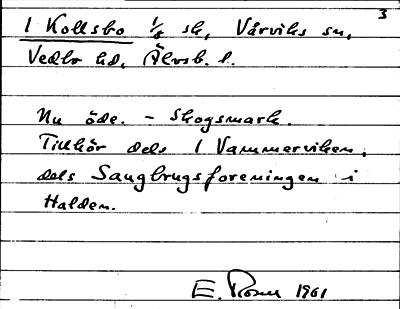 3
1 Kollsbo 1/8 sk, Vårviks sn,
Vedbo hd, Älvsb. l.
Nu öde. - Skogsmark.
Tillhör dels 1 Vammerviken,
dels Saugbrugsforeningen i
Halden.
E. Rosen 1961